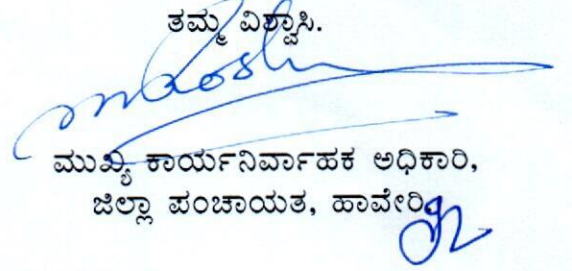 ತಮ್ಮ ವಿಶ್ವಾಸಿ.
ಮುಖ್ಯ ಕಾರ್ಯನಿರ್ವಾಹಕ ಅಧಿಕಾರಿ,
ಜಿಲ್ಲಾ ಪಂಚಾಯತ, ಹಾವೇರಿ.